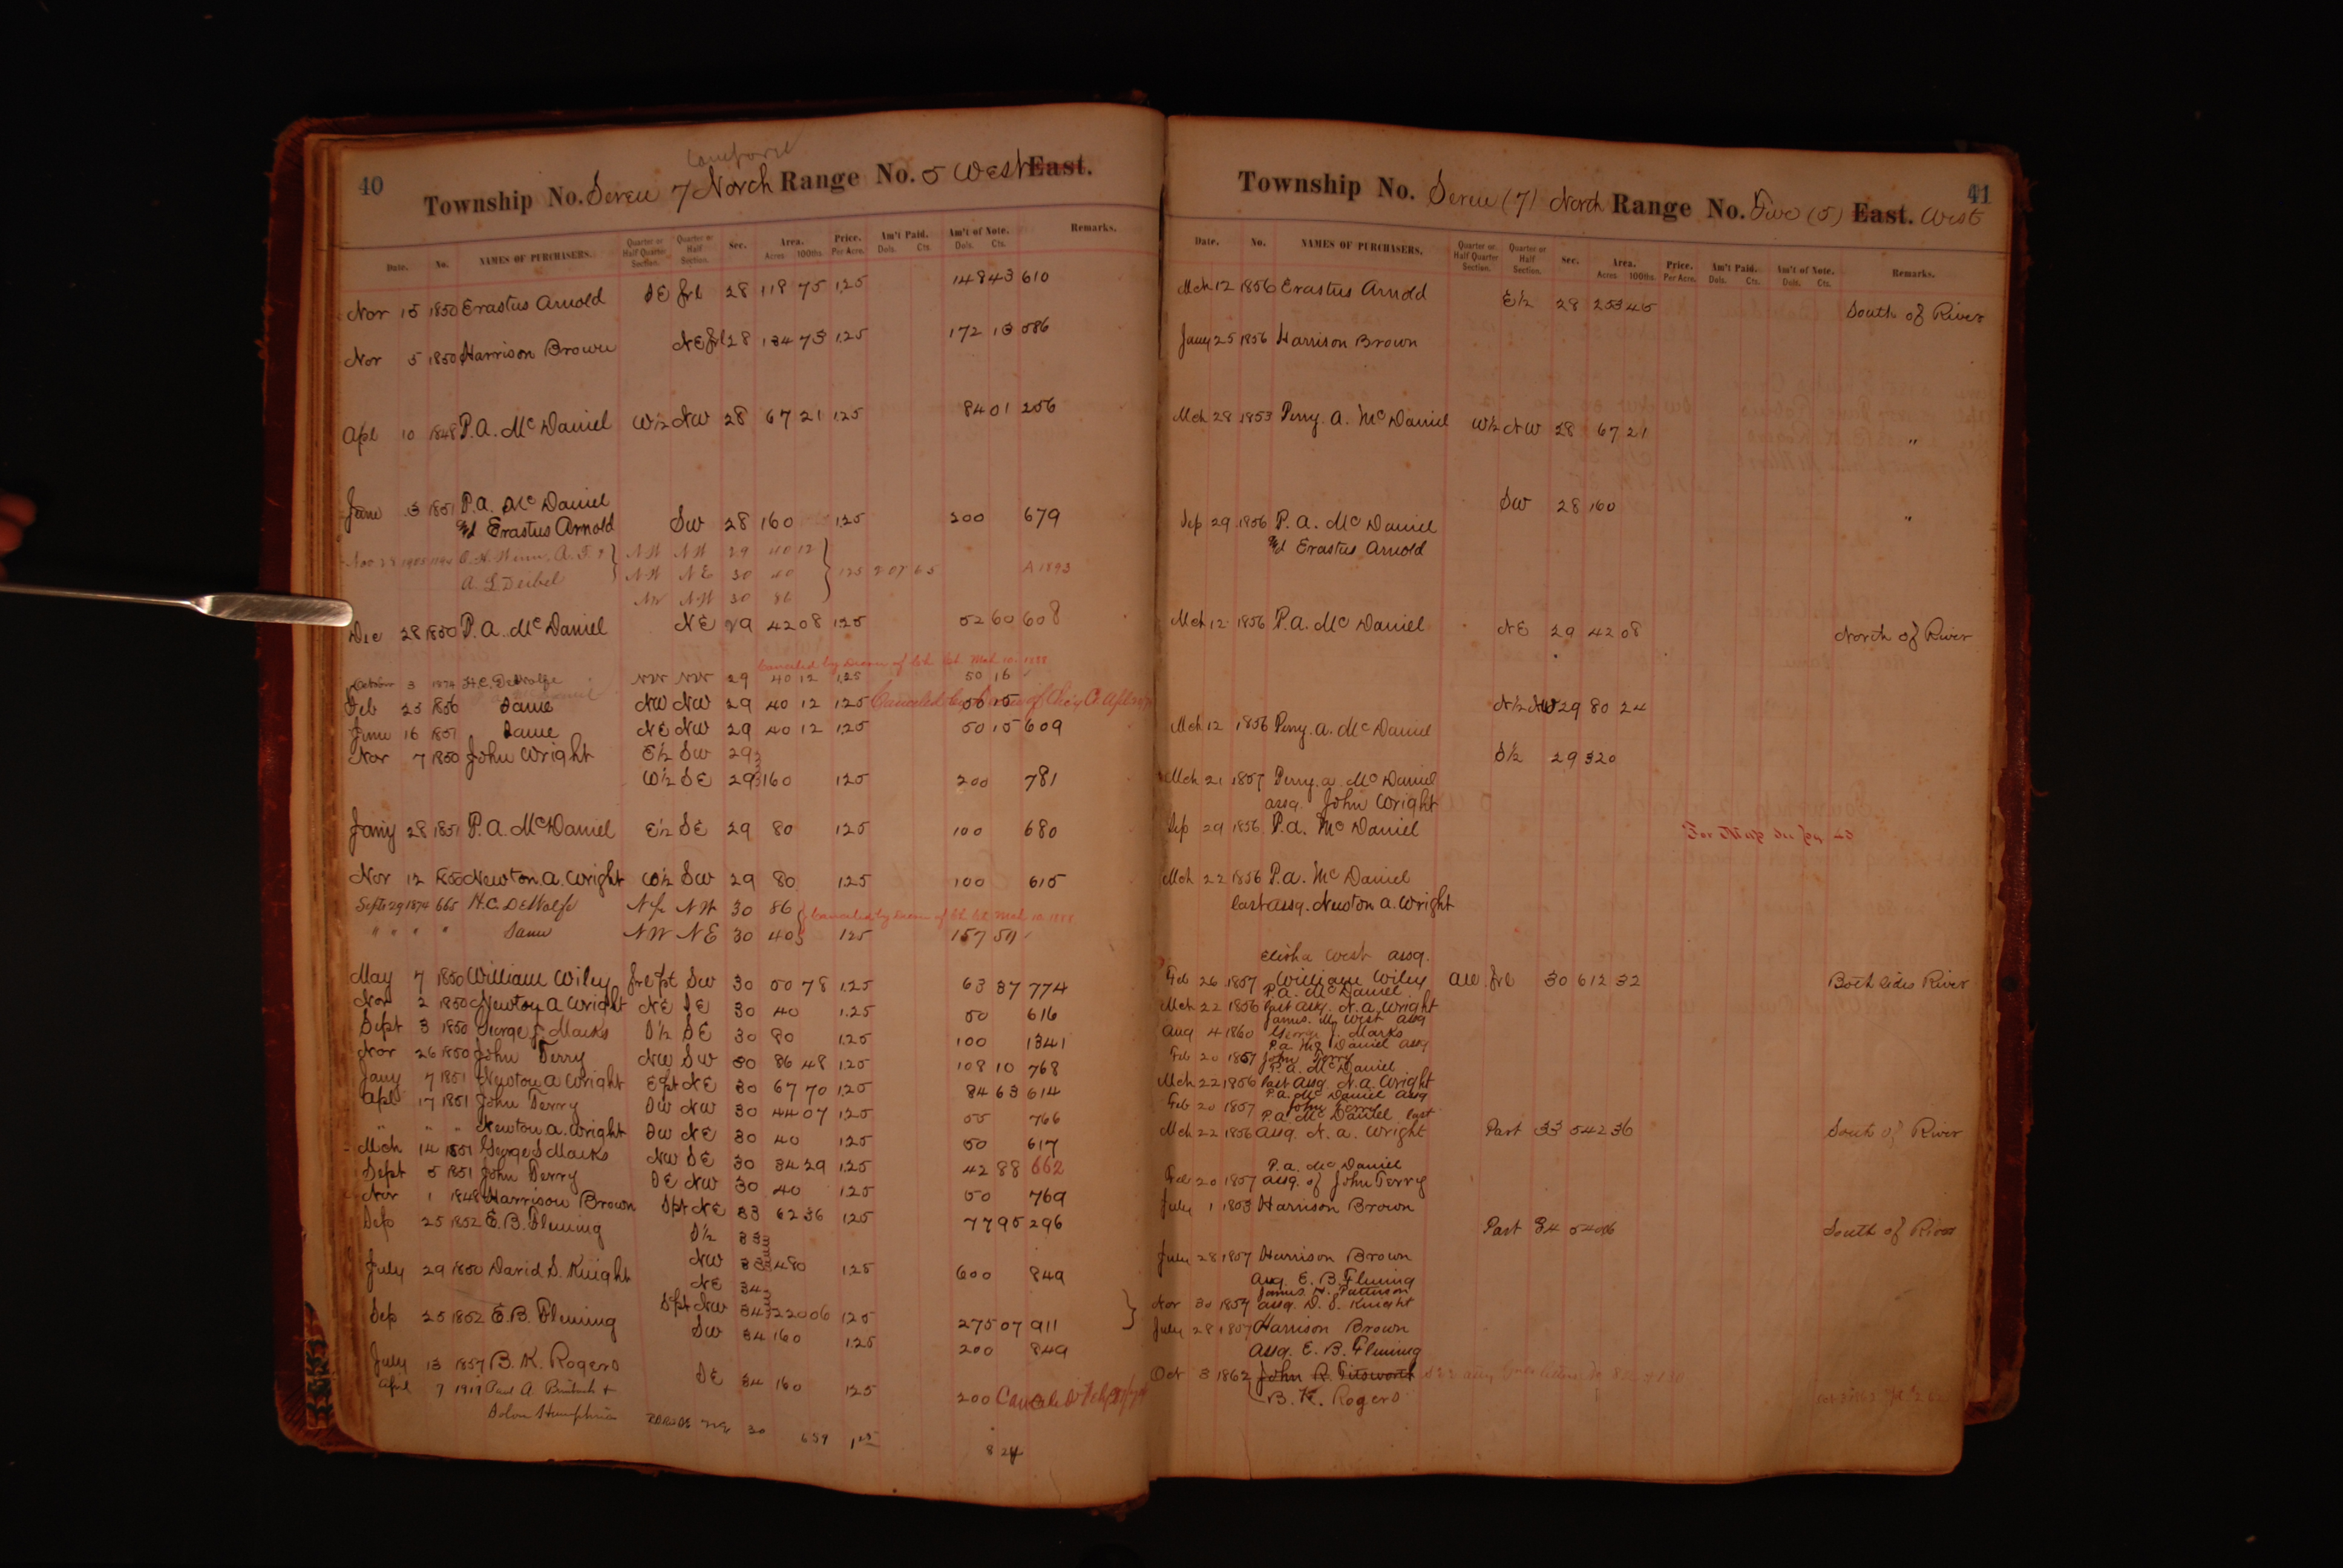 40
Township No. Seven 7 North Range No. 5 West East.
Date. No. NAMES OF PURCHASERS. Quarter or Half Quarter Section. Quarter or Half Section. Sec. Area. Acres 100ths. Price. Per Acre. Am't Paid. Dols. Cts. Am't of Note. Dols. Cts. Remarks.
Nor 15 1850 Erastus Arnold SE frl 28 118 75 1.25 148 43 610
Nor 5 1850 Harrison Brown NE frl 28 134 73 1.25 172 13 586
Apl 10 1848 P.A. McDaniel W½ NW 28 67 21 1.25 84 01 256
June 3 1851 P.A. McDaniel
& Erastus Arnold SW 28 160 1.25 200 679
Nov 28 1905 A.F. &
A. L. Deibel NW NE 30 40 125 207 65 A 1893
NW NW 30 86
Dec 28 1850 P.A. McDaniel NE 29 42 08 1.25 52 60 608
Canceled by Decree of Mch. 10. 1888
October 3 1874 H.C. DeWolfe NW NW 29 40 12 1.25 50 16
Feb 25 1856 Same NW NW 29 40 12 125 50 15
June 16 1851 Same NE NW 29 40 12 125 50 15 609
Nor 7 1850 John Wright E½ SW 29
W½ SE 29 160 125 200 781
Jany 28 1851 P.A. McDaniel E½ SE 29 80 125 100 680
Nor 12 1850 Newton A. Wright W½ SW 29 80 125 100 615
Sept 29 1874 665 H.C. DeWolfe NW 30 86 Canceled by Decree of Mch. 10. 1888
" " " " Same NW NE 30 40 125 157 50
May 7 1850 William Wiley frl pt SW 30 50 78 1.25 63 37 774
Nor 2 1850 Newton A Wright NE SE 30 40 1.25 50 616
Sept 3 1850 George S Marks S½ SE 30 80 1.25 100 1341
Nor 26 1850 John Terry NW SW 30 86 48 1.25 108 10 768
Jany 7 1851 Newton A Wright E pt NE 30 67 70 1.25 84 63 614
Apl 17 1851 John Terry SW NW 30 44 07 1.25 55 766
" " " Newton A. Wright SW NE 30 40 1.25 50 617
Mch 14 1851 George S Marks NW SE 30 34 29 1.25 42 88 662
Sept 5 1851 John Terry SE NW 30 40 1.25 50 769
Nor 1 1848 Harrison Brown S pt NE 33 62 36 1.25 77 95 296
Sep 25 1852 E.B. Fleming S½ 33
NW 33 480 1.25 600 849
July 29 1850 David S. Knight NE 34
S pt NW 34 220 06 1.25 275 07 911
Sep 25 1852 E.B. Fleming SW 34 160 1.25 200 849
July 13 1857 B. K. Rogers SE 34 160 1.25 200
April 7 1919 Paul A &
Solon Humphries NE 30 6 59 1.25 8 24
41
Township No. Seven (7) North Range No. Five (5) East. West
Date. No. NAMES OF PURCHASERS. Quarter or Half Quarter Section. Quarter or Half Section. Sec. Area. Acres 100ths. Price. Per Acre. Am't Paid. Dols. Cts. Am't of Note. Dols. Cts. Remarks.
Mch 12 1856 Erastus Arnold E½ 28 253 45 South of River
Jany 25 1856 Harrison Brown
Mch 28 1853 Perry. A. McDaniel W½ NW 28 67 21 "
SW 28 160 "
Sep 29 1856 P. A. McDaniel
& Erastus Arnold
Mch 12 1856 P.A. McDaniel NE 29 42 08 North of River
N½ NW 29 80 24
Mch 12 1856 Perry. A. McDaniel
S½ 29 320
Mch 21 1857 Perry. A McDaniel
assg. John Wright
Sep 29 1856 P.A. McDaniel
For Map See pg 43
Mch 22 1856 P.A. McDaniel
last assg. Newton A. Wright
Elisha West assg.
Feb 26 1857 William Wiley All frl 30 612 32 Both sides River
P.A. McDaniel
Mch 22 1856 last assg. N.A. Wright
James. M. West assg
Aug 4 1860 George S. Marks
P.A. McDaniel assg
Feb 20 1857 John Terry
P.A. McDaniel
Mch 22 1856 last assg N.A. Wright
P.A. McDaniel assg
Feb 20 1857 John Terry
P.A. McDaniel last
Mch 22 1856 assg. N.A. Wright Part 33 542 36 South of River
P.A. McDaniel
Feb 20 1857 assg. of John Terry
July 1 1853 Harrison Brown
Part 34 540 06 South of River
July 28 1857 Harrison Brown
assg. E. B. Fleming
James. H. Patterson
Nor 30 1857 assg. D. S. Knight
July 28 1857 Harrison Brown
assg. E. B. Fleming
Oct 3 1862 John R. Titsworth
B. K. Rogers